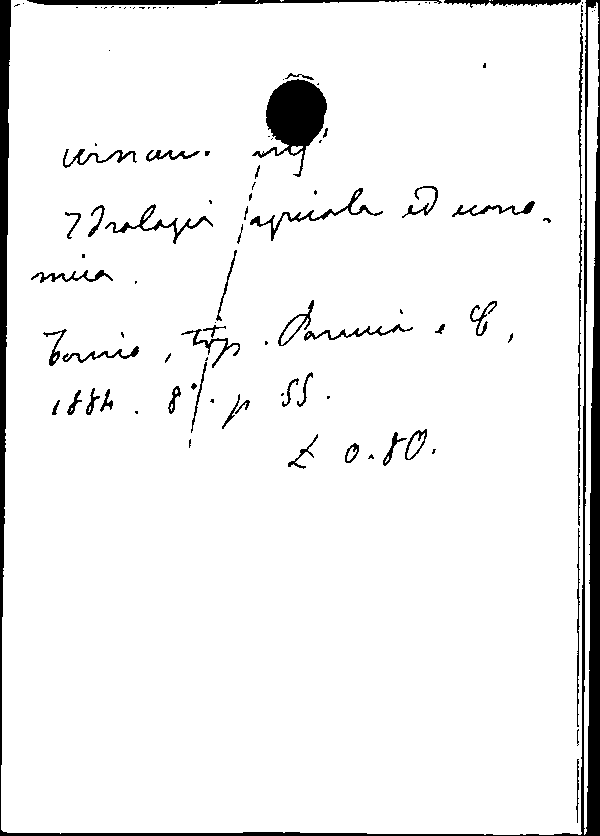 ing.
Idrologia agricola ed econo-
mica.
Torino, tip. Paravia e C,
1884. 8°. p 55.
£ 0.80.